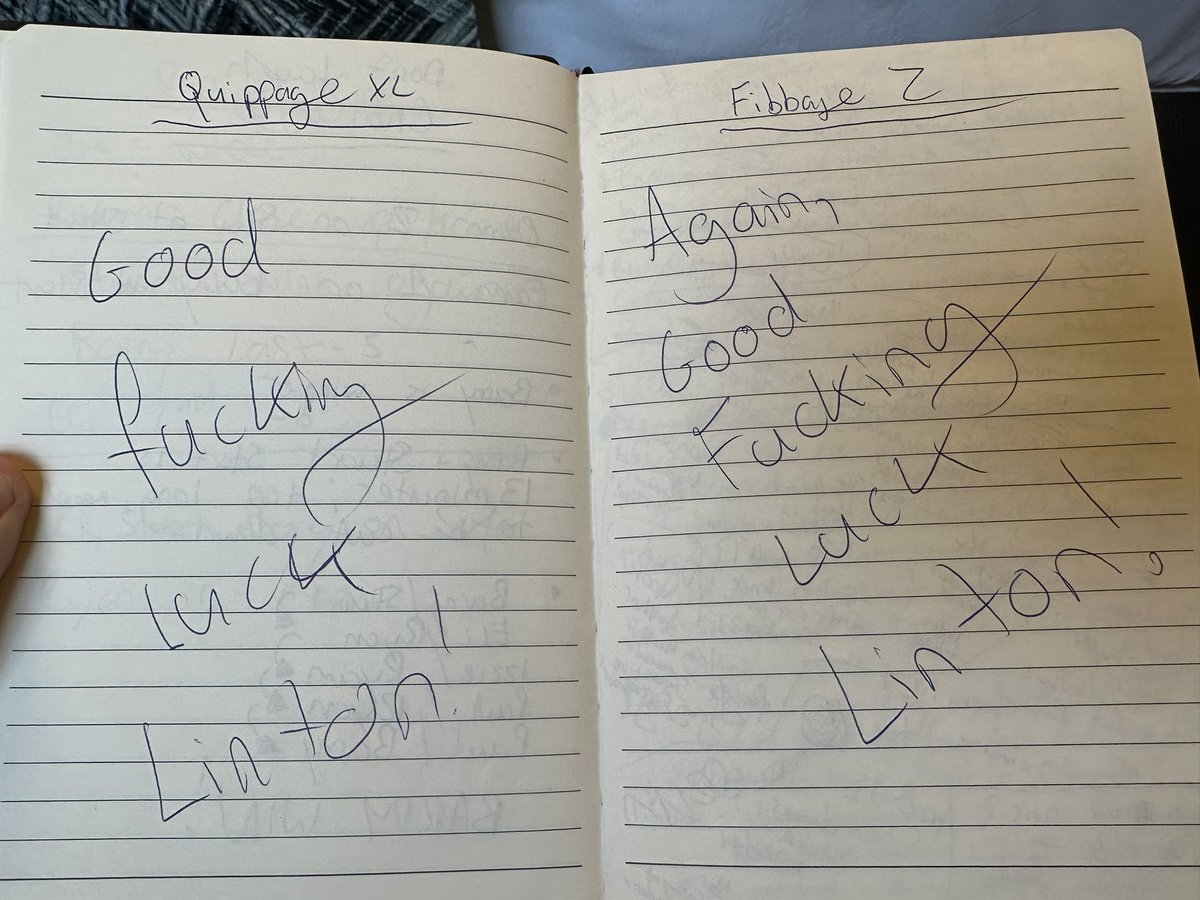 Quippage XL
Good
fucking
Luck
Linton!
Fibbage Z
Again,
Good
Fucking
Luck
Linton!